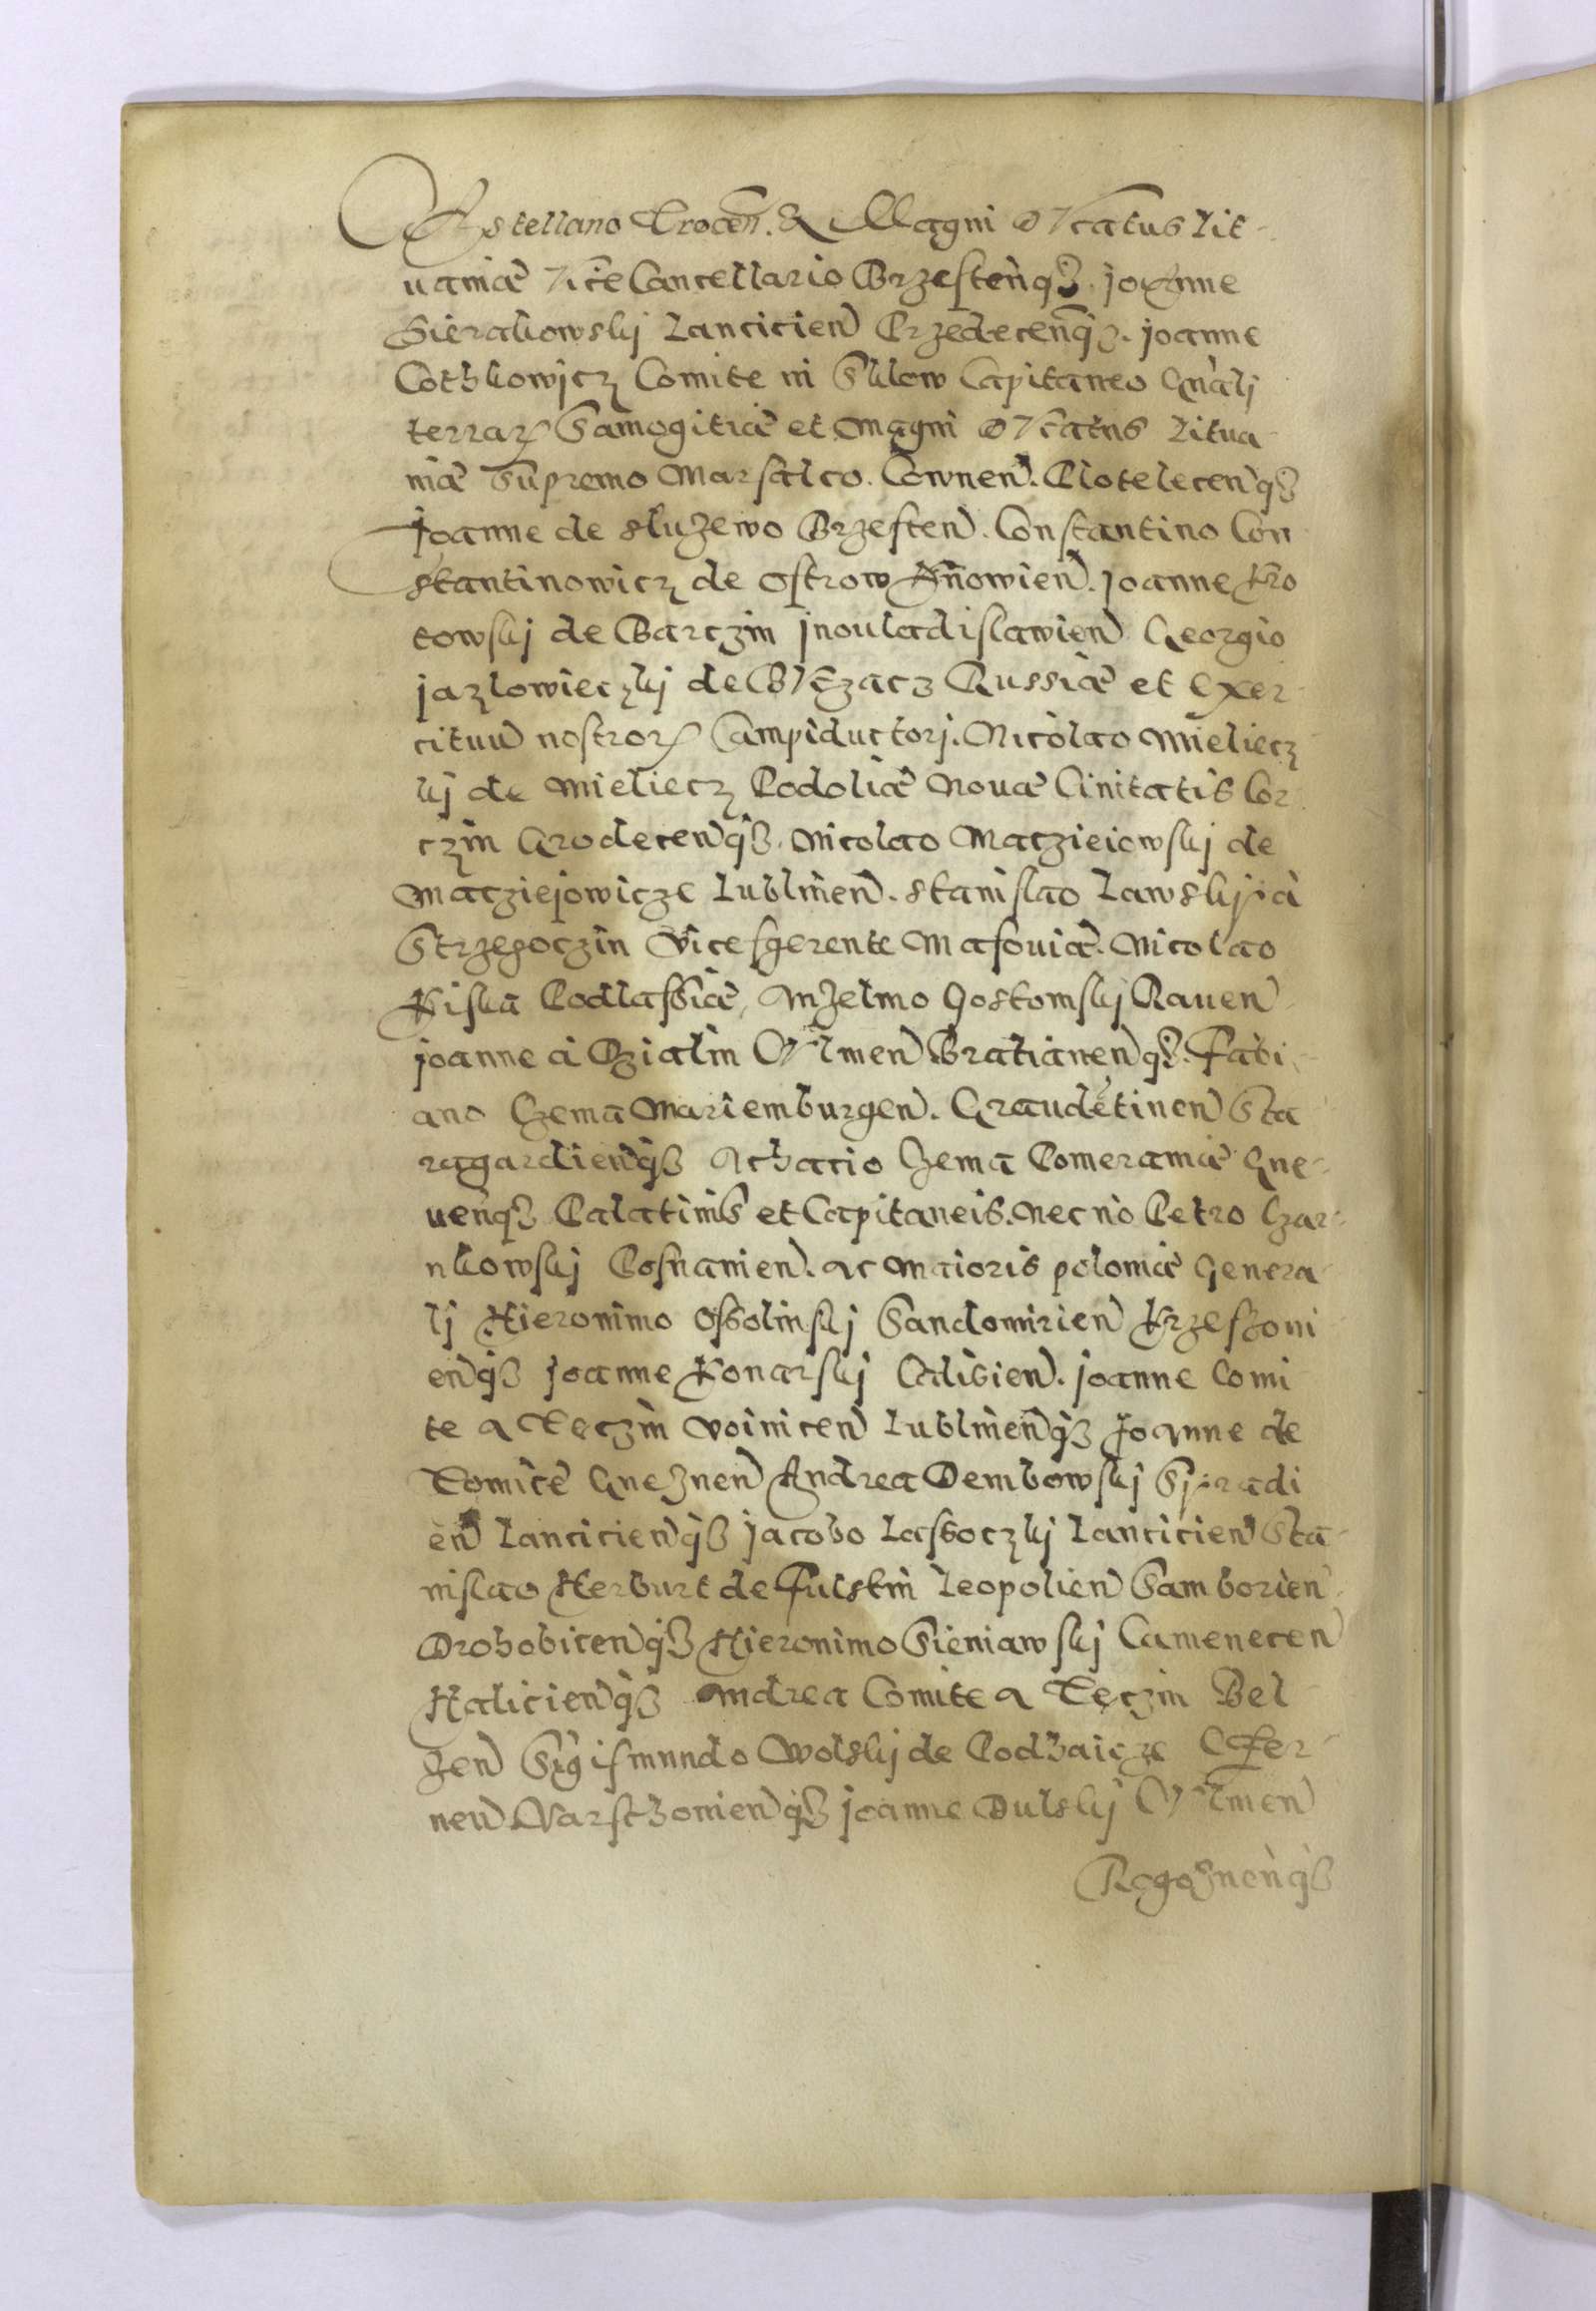 Castellano Trocen. & Magni Ducatus Lit-
uaniæ ViceCancellario Brzestenq3. Joanne
Sierakowskij Lancicien Przedecenq3. Joanne
Cothkowicz Comite in Sklow Capitaneo Gnali
terrar Samogitiæ et Magni Ducatus Litua
niæ Supremo Marsalco. Cownen. Plotelecenq3
Joanne de Sluzewo Brzesten. Constantino Con
stantinowicz de Ostrow Kiiowien. Joanne Kro
towskij de Barczin Jnouladislawien Georgio
Jazlowieczkij de Buczacz Russiæ et Exer-
cituu nostror Campiductorj. Nicolao Mieliecz
kij de Mieliecz Podoliæ Nouæ Ciuitatis Cor
czin Grodecenq3. Nicolao Macziejowskij de
Macziejowicze Lublinen. Stanislao Lawskij a
Strzegoczin Vicesgerente Masouiæ. Nicolao
Kiska Podlassiæ, Anzelmo Gostomskij Rauen
Joanne a Dzialin Culmen Bratianenq3. Fabi-
ano Czema Mariemburgen. Graudetinen Sta
rogardienq3 Achatio Czema Pomeraniæ Gne-
uenq3 Palatinis et Capitaneis. Nec no Petro Czar-
nkowskij Posnanien. ac Maioris poloniæ Genera
lj Hieronimo Ossolinskij Sandomirien Krzeszoui
enq3 Joanne Konarskij Calisien. Joanne Comi
te a Teczin Voinicen Lublinenq3 Joanne de
Tomice Gneznen Andrea Dembowskij Syradi
en Lancicienq3 Jacobo Lassoczkij Lancicien Sta-
nislao Herburt de Fulstin Leopolien Samborien
Drohobicenq3 Hieronimo Sieniawskij Camenecen
Halicienq3 Andrea Comite a Teczin Bel
zen Sigismundo Wolskij de Podhaicze Czer-
nen Varschouienq3 Joanne Dulskij Culmen
Rogoznenq3